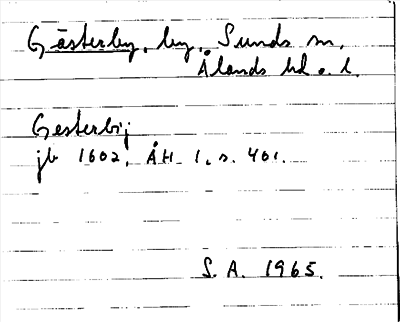 Gästerby, by, Sunds sn,
Ålands hd o. l.
Gesterbij
jb 1602, ÅH 1, s. 401.
S. A. 1965.